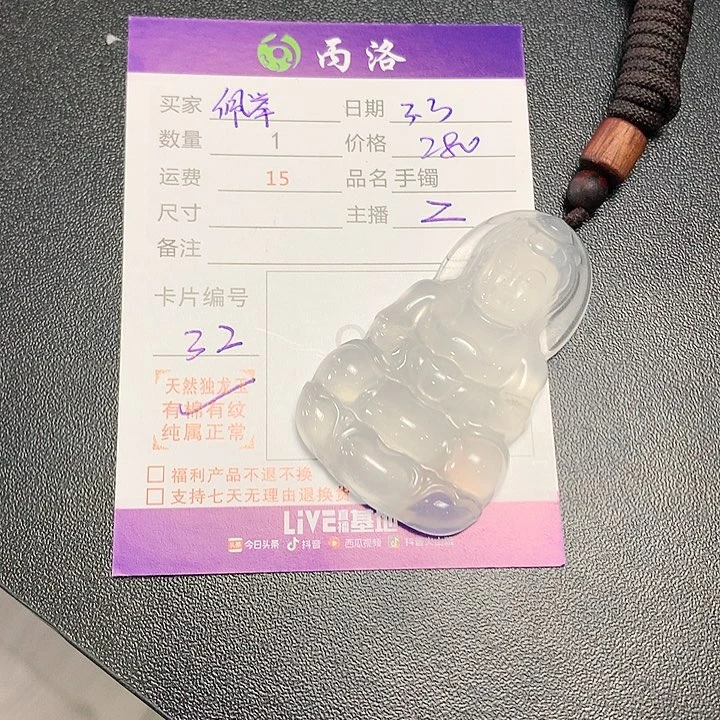 丙洛
买家 佩举 日期 3.3
数量 1 价格 280
运费 15 品名 手镯
尺寸 主播 乙
备注
卡片编号
32
天然独龙玉
有棉有纹
纯属正常
福利产品不退不换
支持七天无理由退换货
LiVE直播基地
今日头条 抖音 西瓜视频 抖音火山版